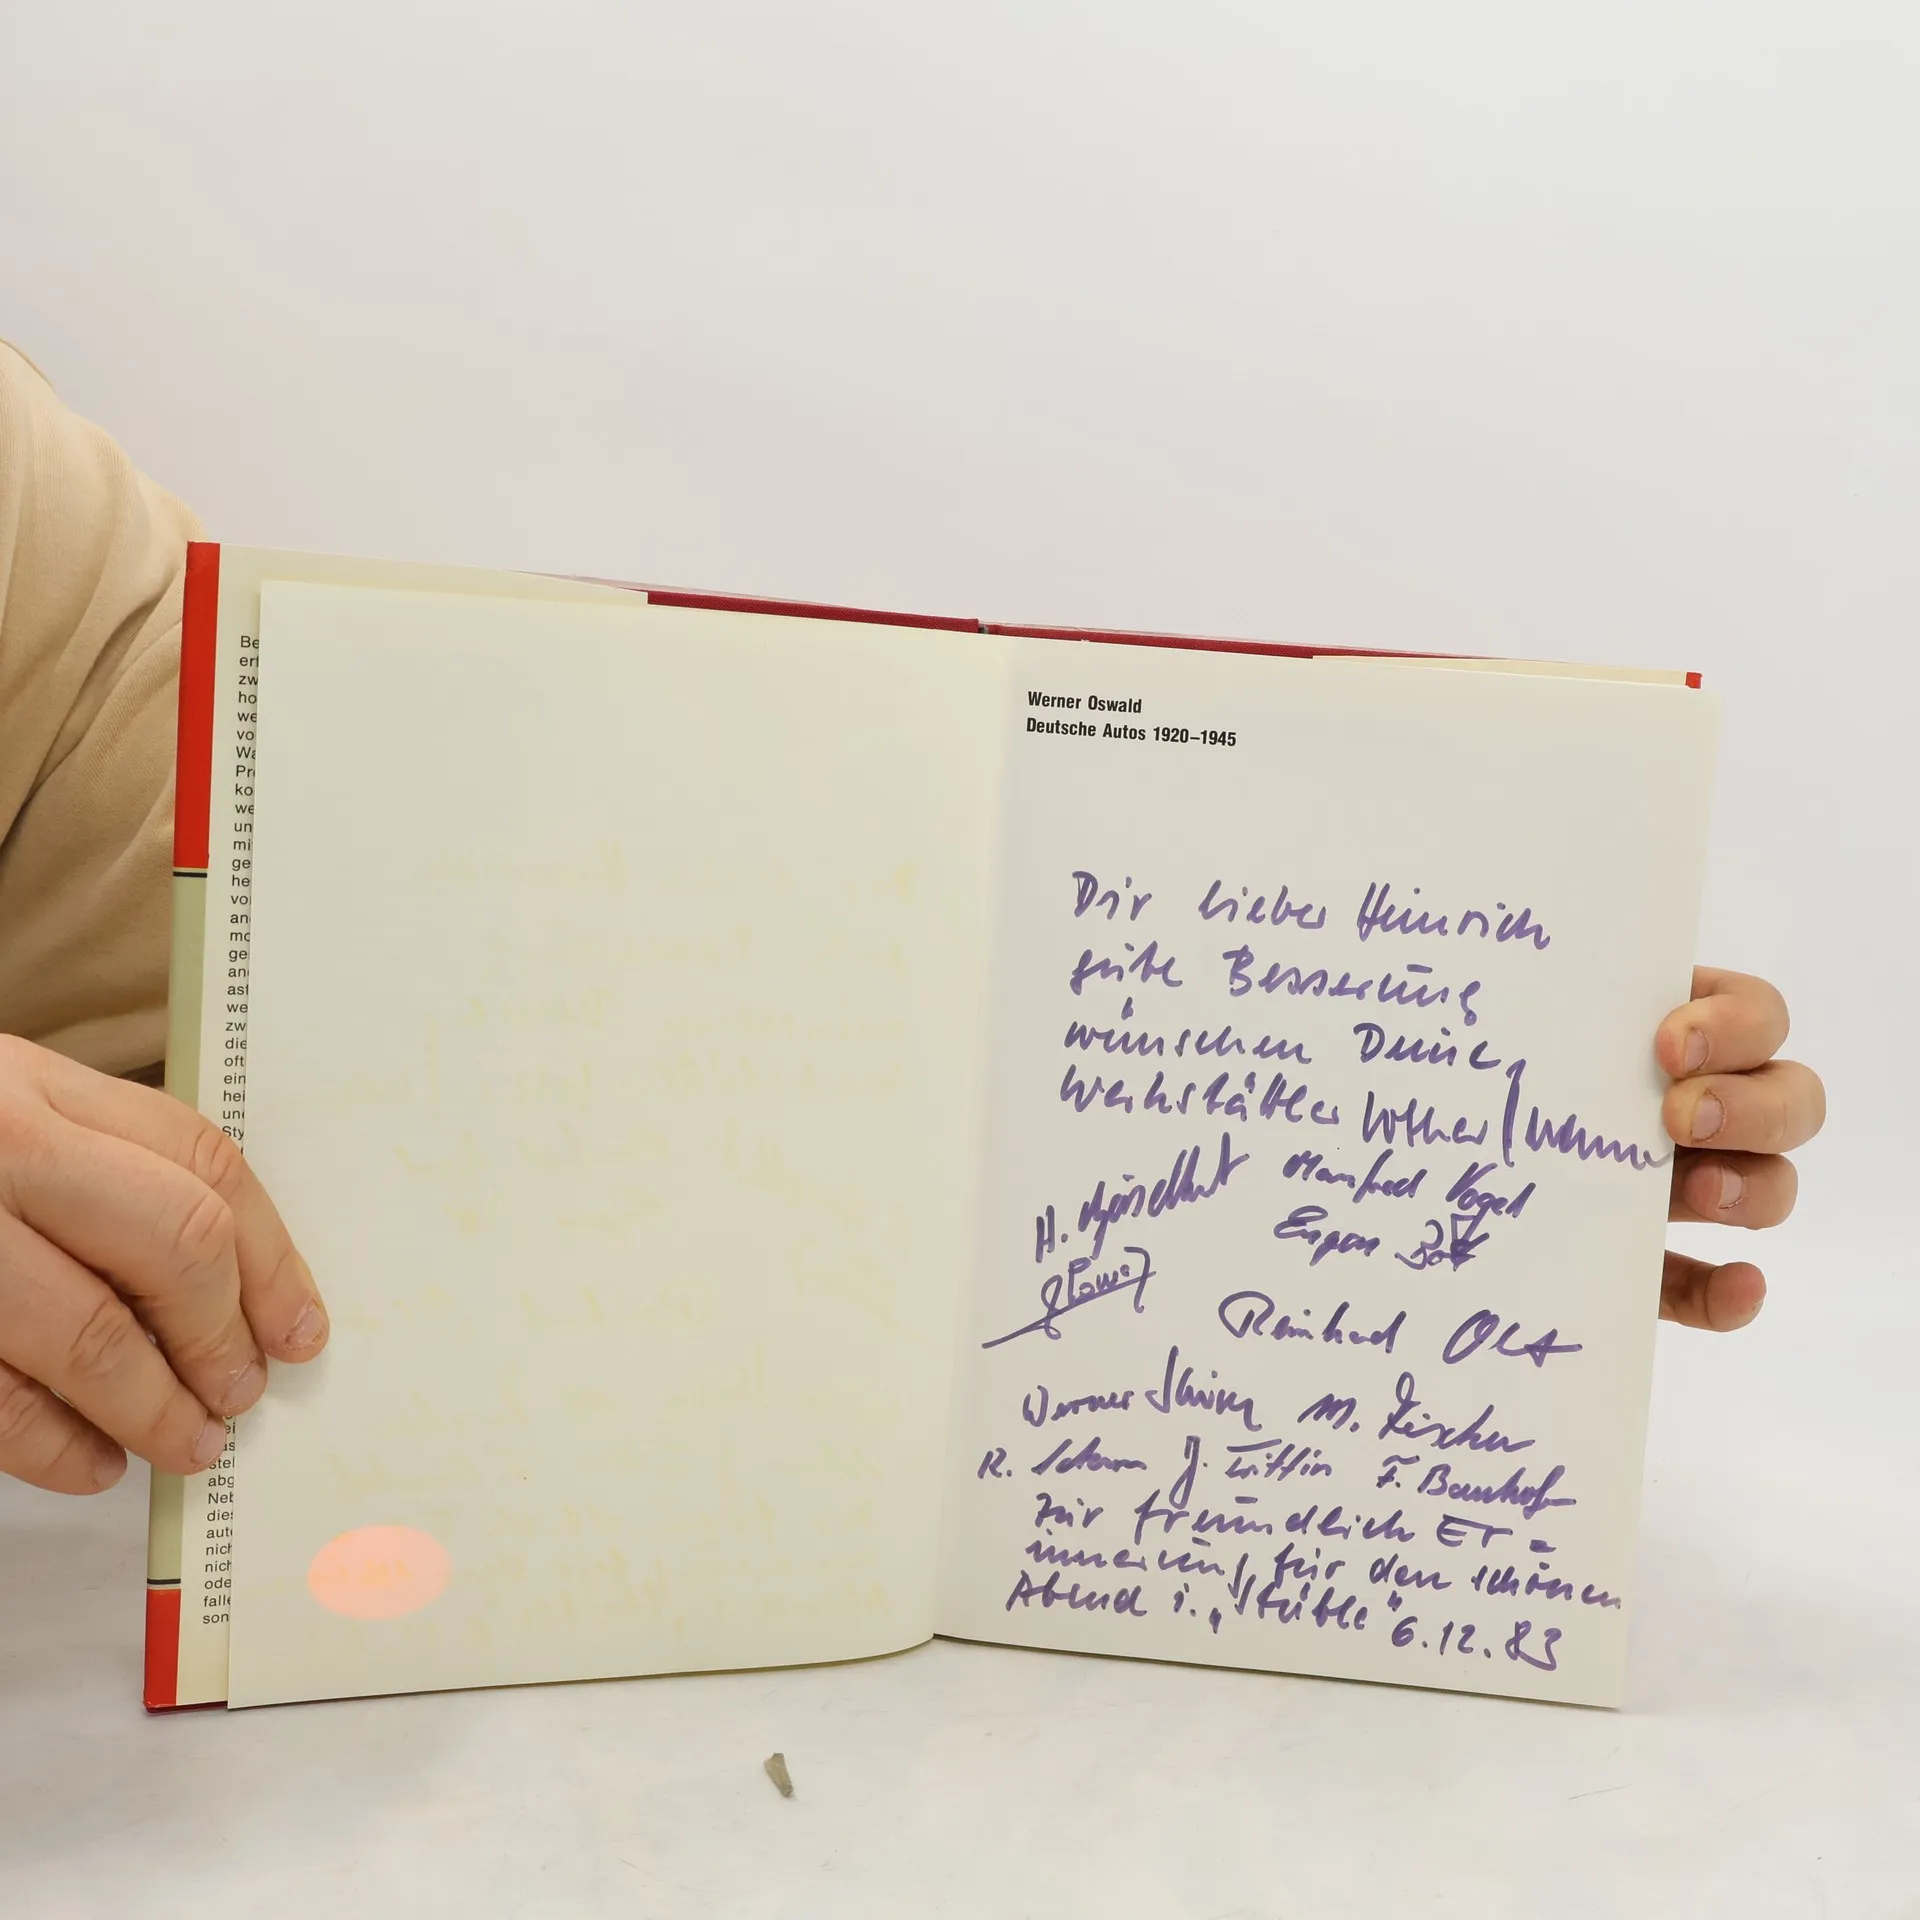 Be
erf
zw
ho
we
vo
Wa
Pre
ko
we
un
mi
ge
he
vo
an
mo
ge
an
ast
we
zw
die
oft
ein
hei
und
Sty
stel
abg
Neb
dies
auto
nich
nich
ode
falle
son
Werner Oswald
Deutsche Autos 1920–1945
Dir lieber Heinrich
gute Besserung
wünschen Deine
Werkstättler Lothar
H.
Manfred Vogel
Eugen
Reinhard Ott
Werner
M. Fischer
R. J. Trittin F. Bauhof
Zur freundlich Er=
innerung für den schönen
Abend i. „Stüble" 6.12.83